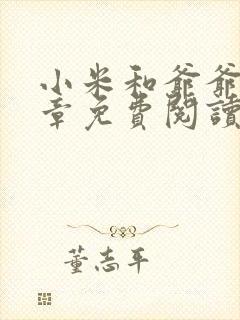 小米和爺爺
章免費閱讀
董志平